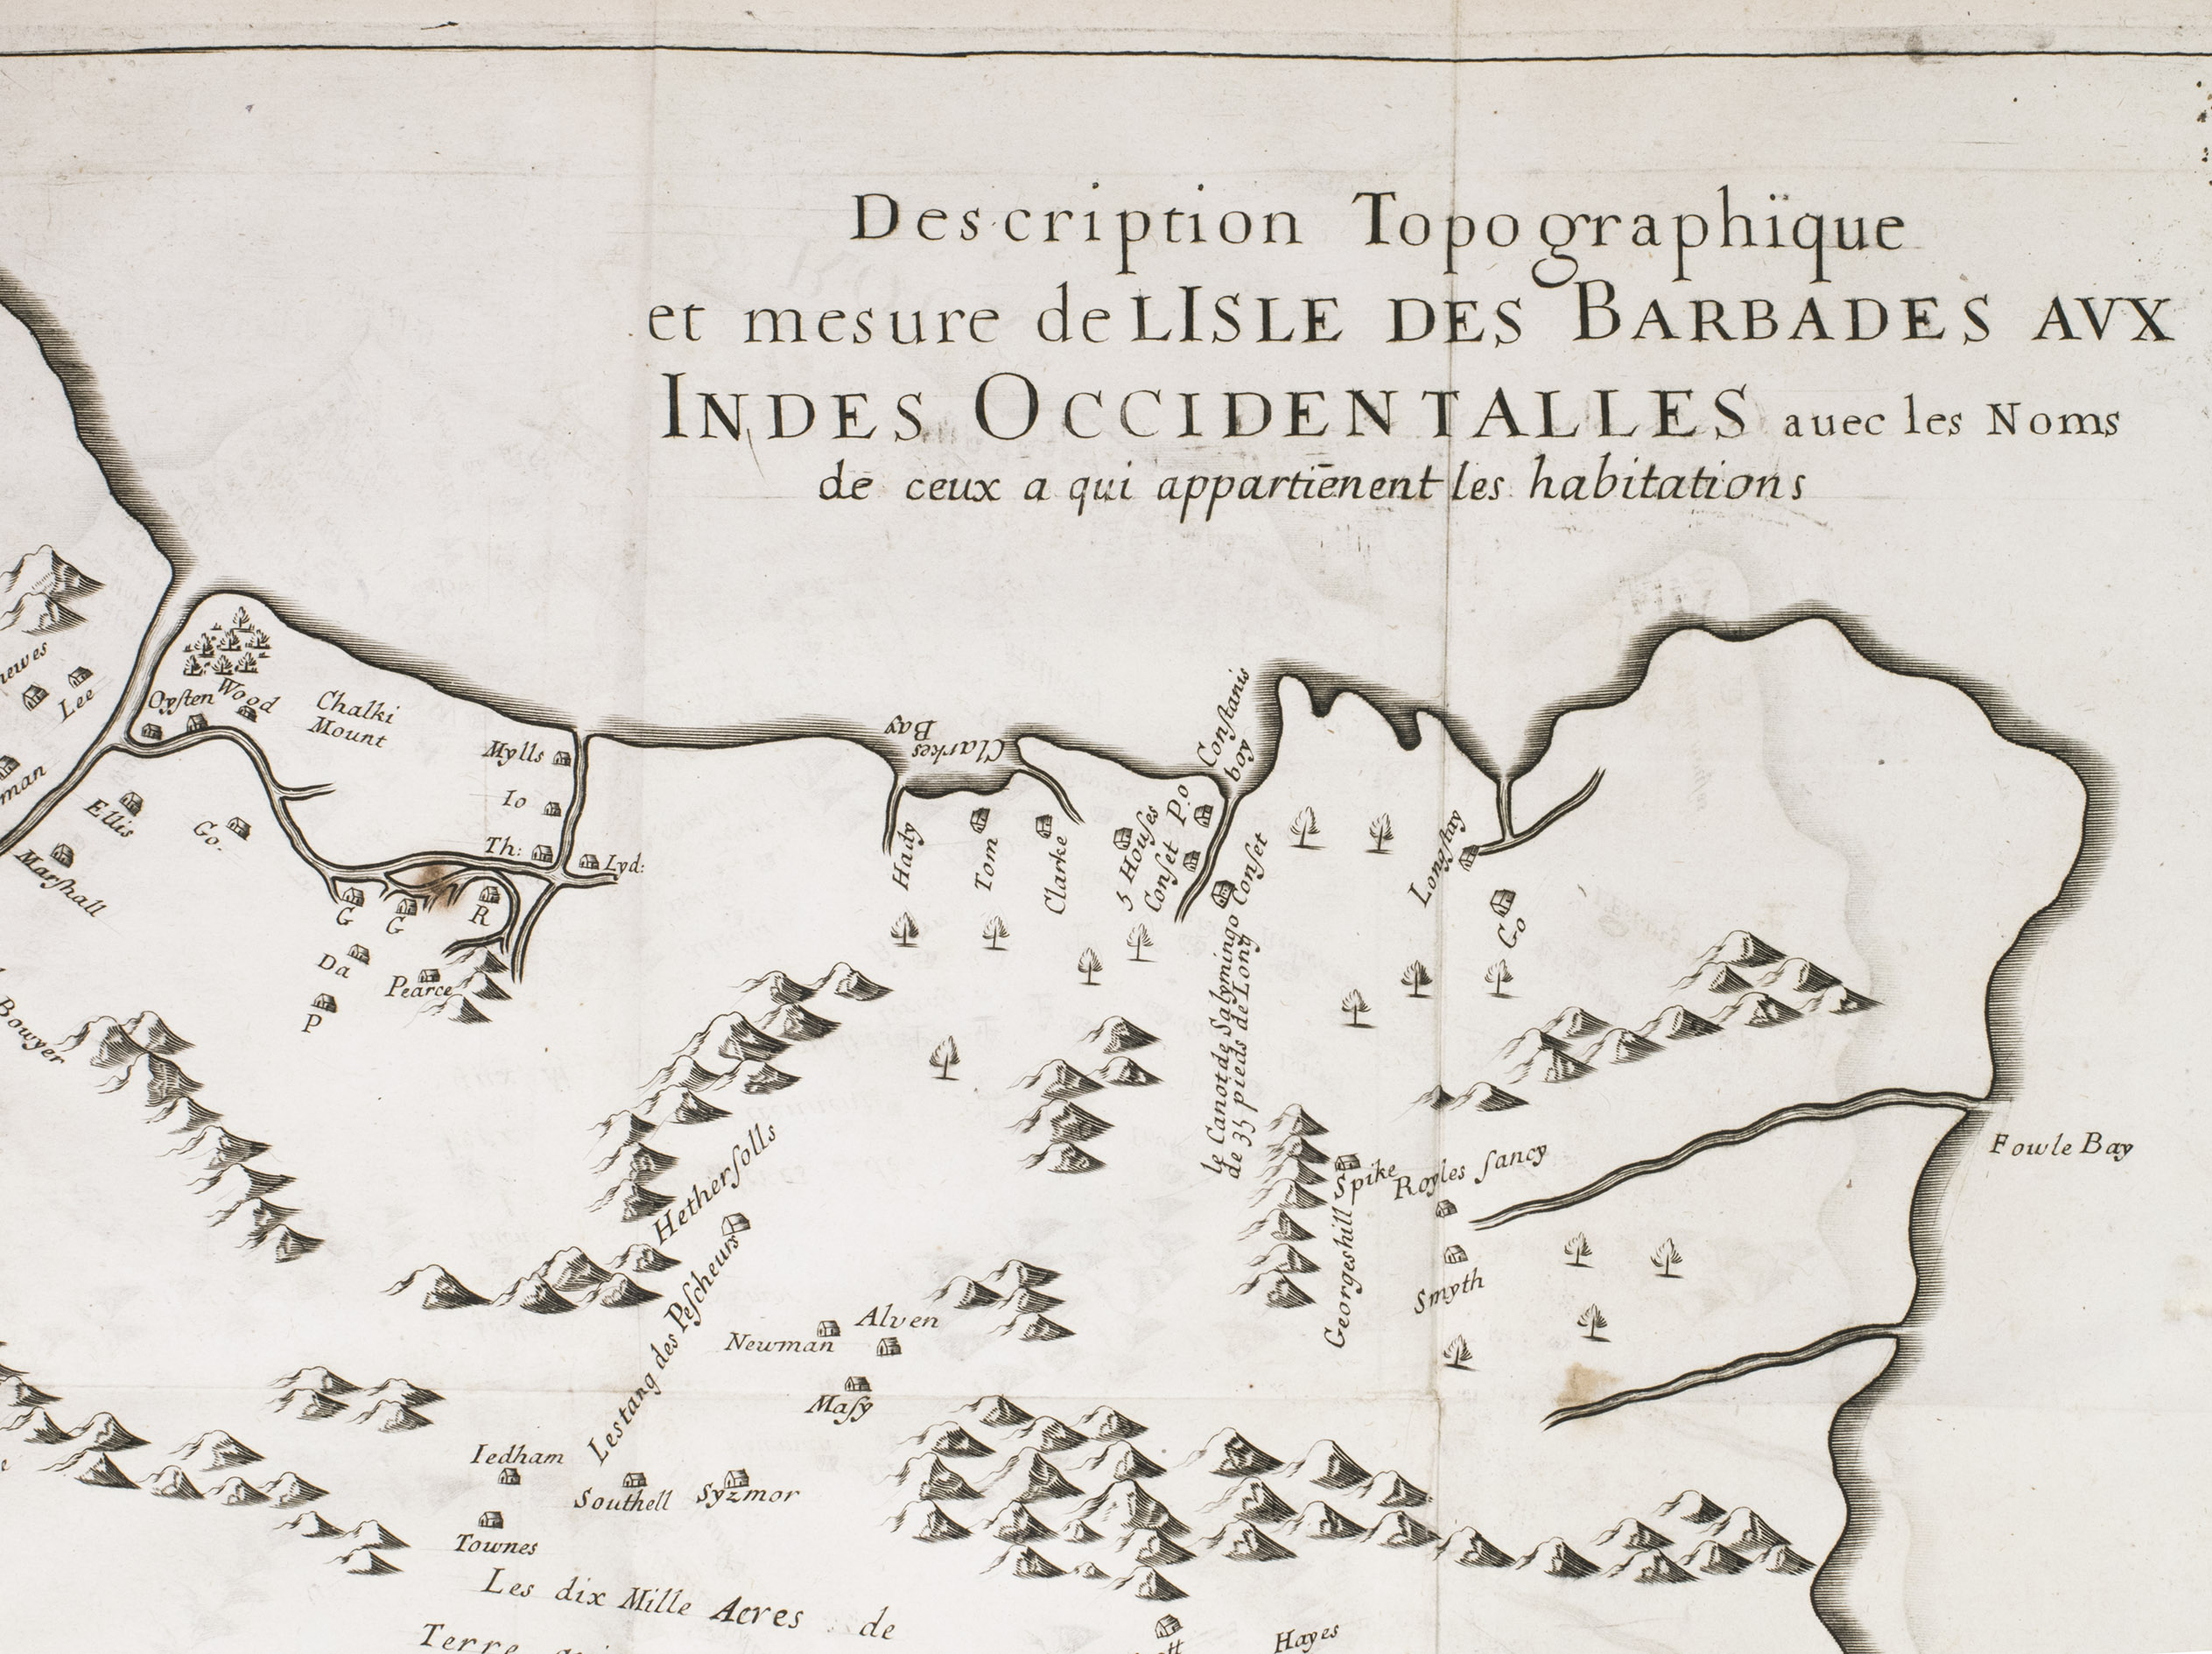 Description Topographïque
et mesure de LISLE DES BARBADES AVX
INDES OCCIDENTALLES auec les Noms
de ceux a qui appartiēnent les habitations
Lee
Oysten
Wood
Chalki
Mount
Mylls
Io
Th:
Lyd:
Ellis
Go.
Marshall
G
G
R
Da
Pearce
P
Bowyer
Clarkes
Bay
Hady
Tom
Clarke
5 Houses
Conset P.o
Constanis
bay
le Canot de Salymingo Conset
de 35 pieds de Long
Longstay
Go
Fowle Bay
Spike
Royles fancy
Georgeshill
Smyth
Hethersolls
Lestang des Pescheurs
Newman
Alven
Masy
Iedham
Southell
Syzmor
Townes
Les dix Mille Acres de
Terre
Hayes